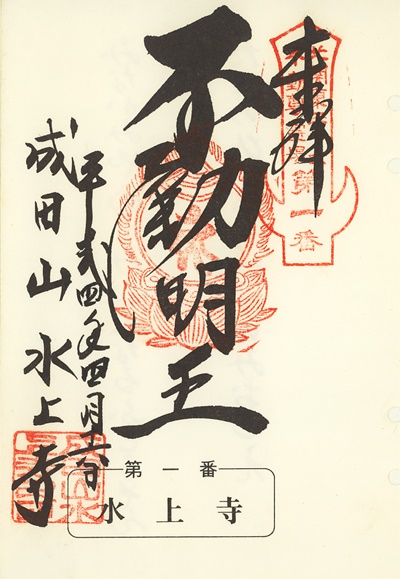 奉拝
第一番
不動明王
平成弐四年四月十六日
成田山水上寺
第一番
水上寺